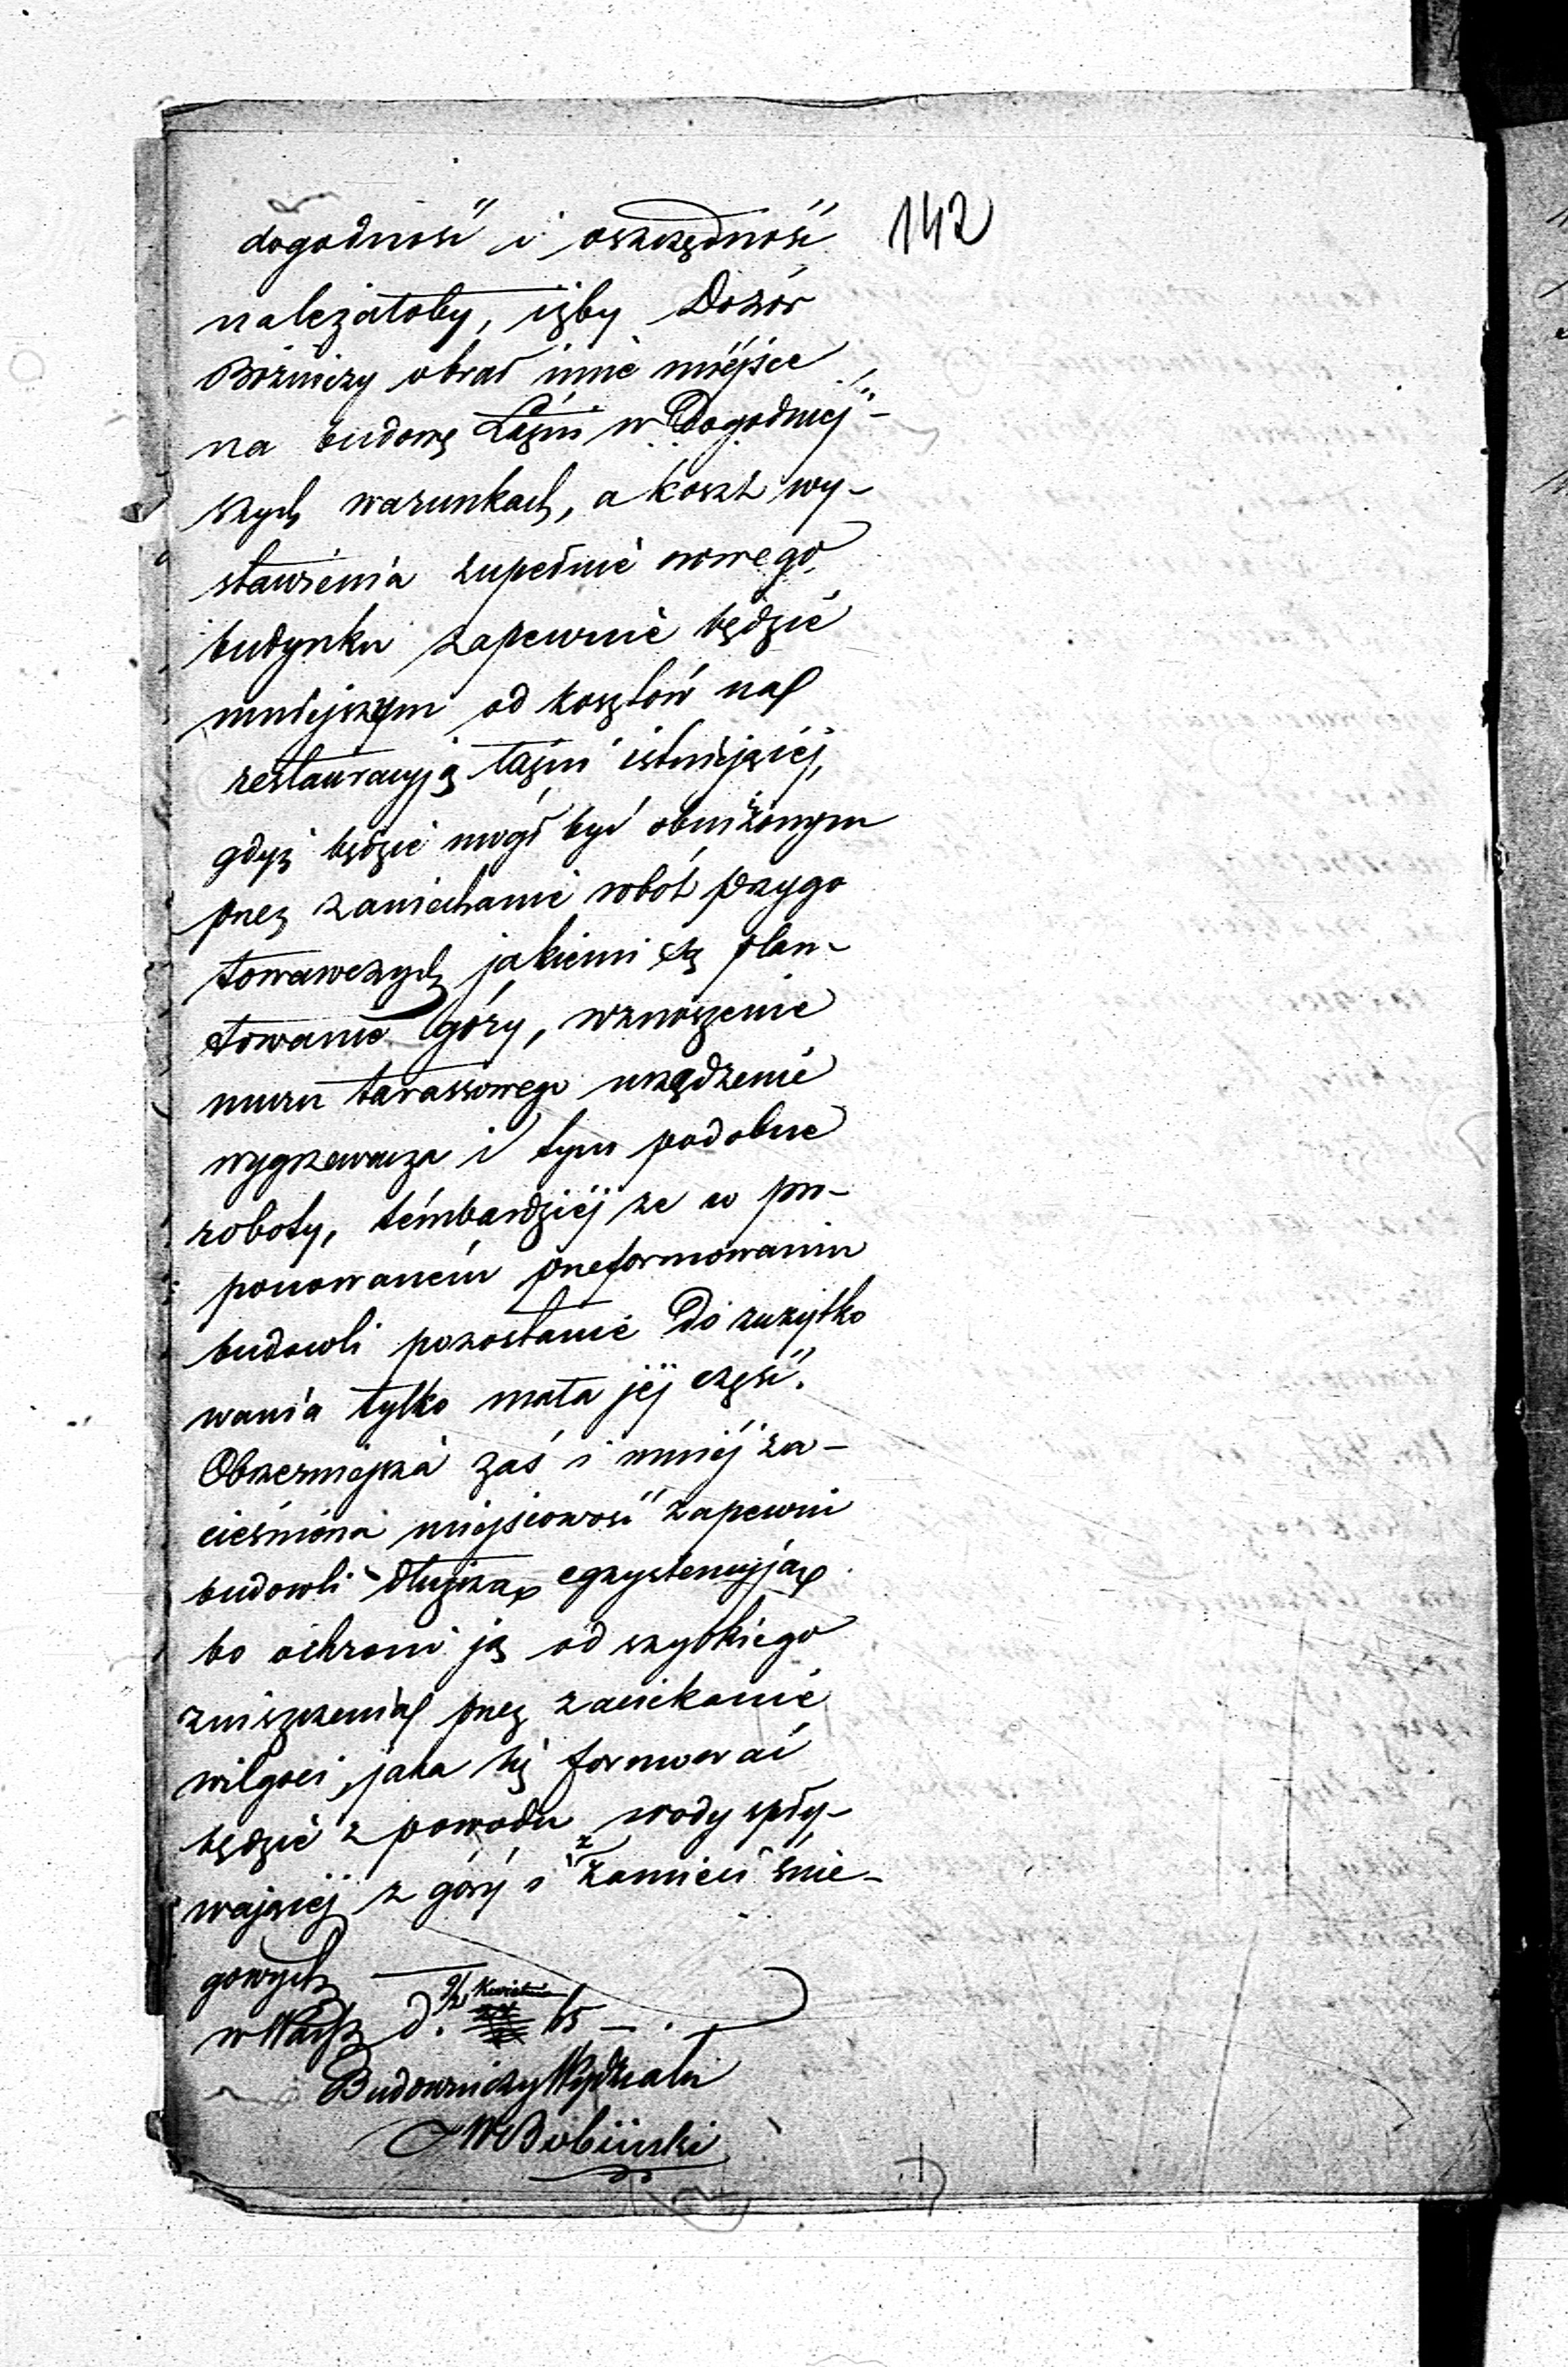 142
dogodność i oszczędność
należałoby, iżby Dozór
Bóżniczy obrał inné miéjsce
na budowę Łaźni w Dogodniej-
szych warunkach, a koszt wy-
stawienia zupełnie nowego
budynku zapewnie będzie
mniejszym od kosztów na
restauracyją łaźni istniejącéj,
gdyż będzie mógł być obniżonym
przez zaniechanie robót przygo
towawczych jakiemi są plan-
towanie góry, wznoszenie
muru tarassowego urządzenie
wygrzewacza i tym podobne
roboty, témbardziéj ze w pro-
ponowaném przeformowaniu
budowli pozostanie Do zużytko
wania tylko mała jéj część.
Obszerniejsza zaś i mniéj za-
cieśniona miejscowość zapewni
budowli dłuższą egzystencyją
bo ochroni ją od szybkiego
zniszczenia przez zaciekanie
wilgoci, jaka się formować
będzie z powodu wody spły-
wającéj z góry i z zamieci śnie-
gowych
w Warsz d. 9/21 Kwietnia 65
Budowniczy Wydziału
Bobiński